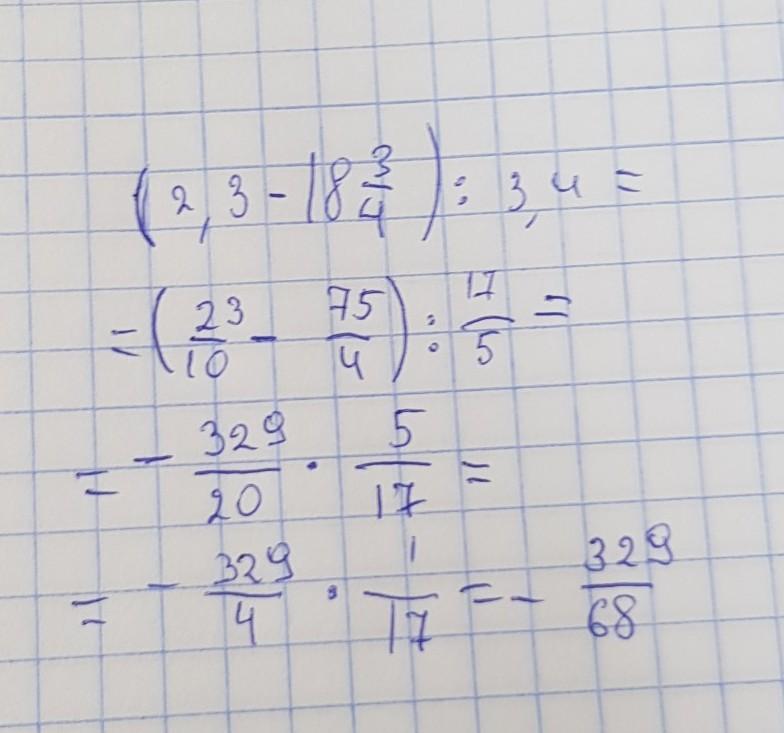 (2,3 - 18 3/4) : 3,4 =
= (23/10 - 75/4) : 17/5 =
= - 329/20 · 5/17 =
= - 329/4 · 1/17 = - 329/68